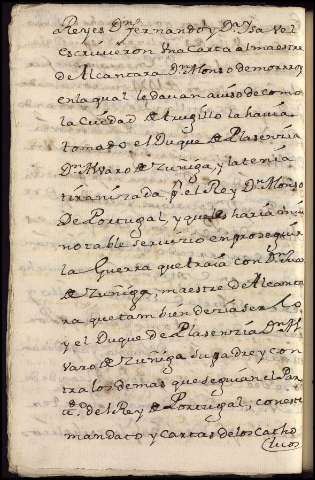 a Reyes Dn. fernando y Da. Isavel
escrivieron Una Carta al maestre
de Alcantara Dn. Alonso de monroy
en la qual le davan aviso de como
la Ciudad de trugillo la havia
tomado el Duque de Plasenzia
Dn. Alvaro de Zuñiga, y la tenia
tiranizada pr. el Rey Dn. Alonso
De Portugal, y que les haria mui
notable servizio en proseguir
la Guerra que traia con Dn. Jua
de Zuñiga, maestre de Alcanta
ra que tambien deçia serlo,
y el Duque de Plasenzia Dn. Al
varo de Zuñiga su padre y con
tra los demas que seguian el Par
tdo. del Rey de Portugal, con este
mandato y Cartas de los Catho
licos